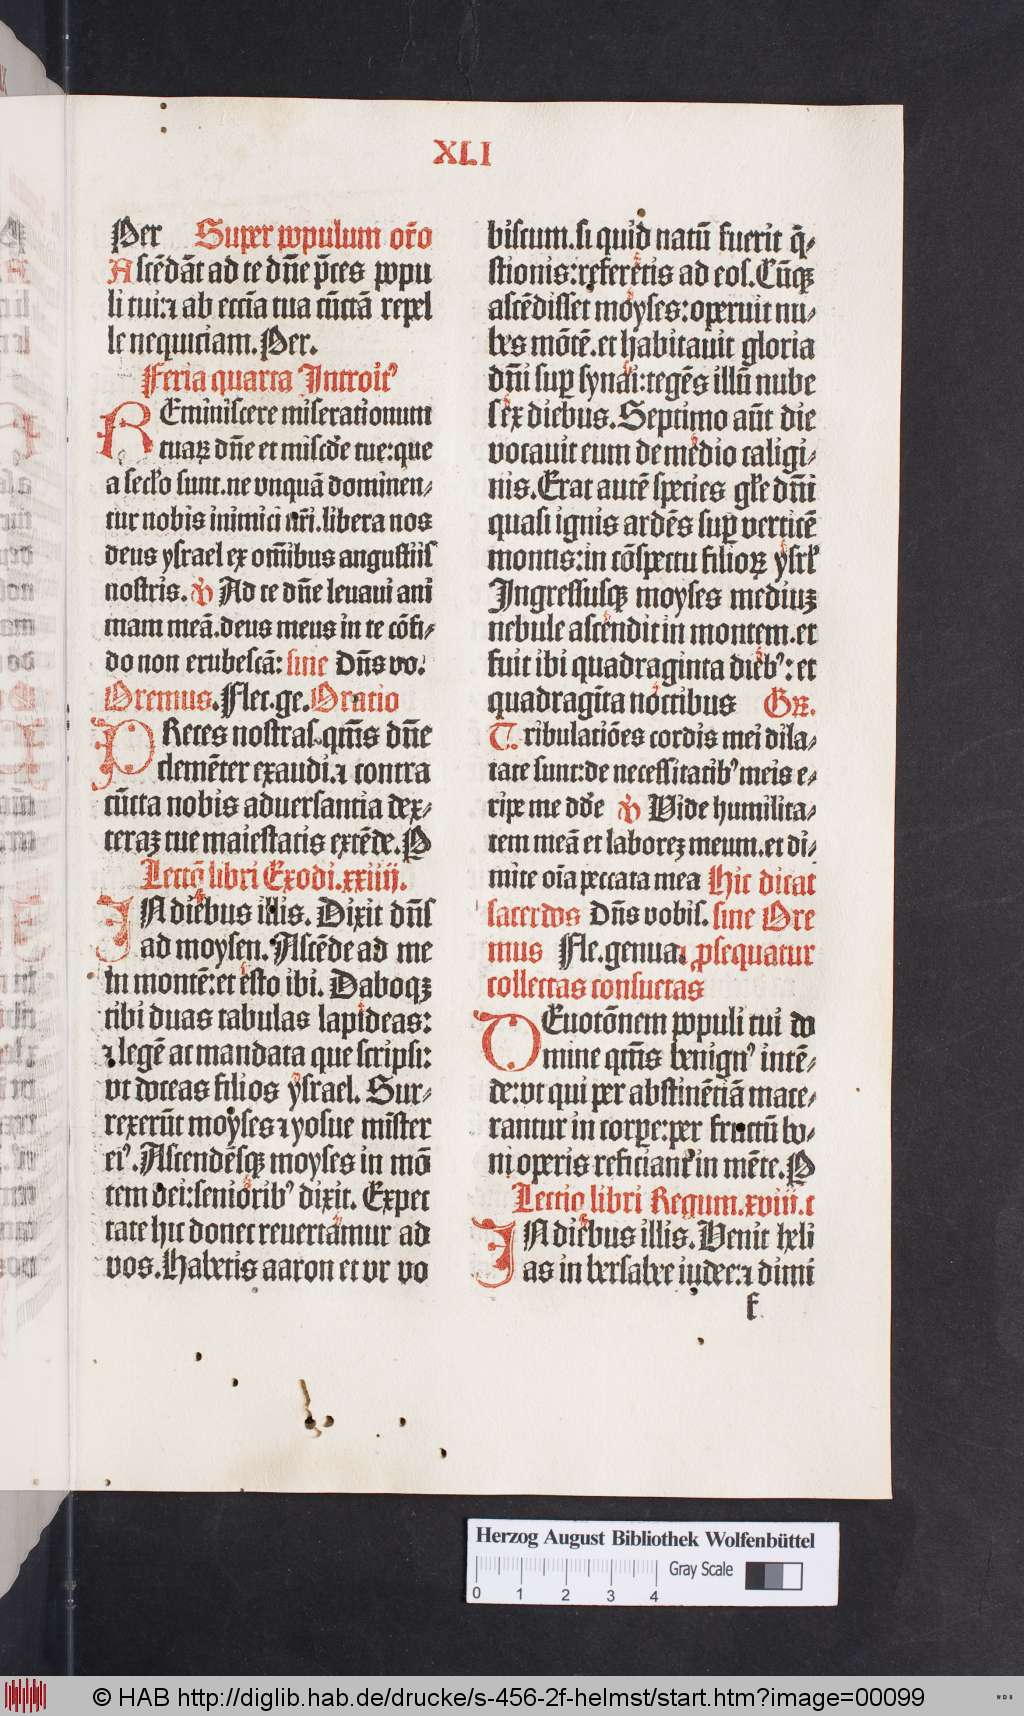 XLI
Per Super populum or̄o
Ascēdāt ad te dn̄e p̄ces popu
li tui:⁊ ab eccīa tua cūctā repel
le nequiciam. Per.
Feria quarta Introitꝰ
REminiscere miserationum
tuaꝝ dn̄e et misc̄de tue:que
a seclo sunt. ne vnquā dominen⸗
tur nobis inimici nr̄i. libera nos
deus ysrael ex om̄ibus angustiis
nostris. ℣ Ad te dn̄e leuaui ani
mam meā. deus meus in te cōfi⸗
do non erubescā: sine Dn̄s vo.
Oremus. Flec. ge. Oratio
PReces nostras qm̄s dn̄e
clemēter exaudi. ⁊ contra
cūcta nobis aduersantia dex⸗
teraꝫ tue maiestatis extēde. P
Lectō libri Exodi. xxiiij.
IN diebus illis. Dixit dn̄s
ad moysen. Ascēde ad me
in montē: et esto ibi. Daboqꝫ
tibi duas tabulas lapideas:
⁊ legē ac mandata que scripsi:
vt doceas filios ysrael. Sur⸗
rexerūt moyses ⁊ yosue mīster
eiꝰ. Ascendēsqꝫ moyses in mō
tem dei: senioribꝰ dixit. Expec
tate hic donec reuertamur ad
vos. Habetis aaron et vr vo
biscum. si quid natū fuerit q̄⸗
stionis: referetis ad eos. Cūqꝫ
ascēdisset moyses: operuit nu⸗
bes mōtē. et habitauit gloria
dn̄i suꝑ synai: tegēs illū nube
sex diebus. Septimo aūt die
vocauit eum de medio caligi⸗
nis. Erat autē species gl̄e dn̄i
quasi ignis ardēs suꝑ verticē
montis: in cōspectu filioꝝ ysrl̄
Ingressusqꝫ moyses mediuꝫ
nebule ascendit in montem. et
fuit ibi quadraginta diebꝰ: et
quadragīta noctibus Gꝝ.
Tribulatiōes cordis mei dila⸗
tate sunt: de necessitatibꝰ meis e⸗
ripe me dn̄e ℣ Vide humilita⸗
tem meā et laboreꝫ meum. et di⸗
mitte oīa peccata mea Hic dicat
sacerdos Dn̄s vobis. sine Ore
mus Fle. genua ꝓsequatur
collectas consuetas
DEuotōnem populi tui do
mine qm̄s benignꝰ intē⸗
de: vt qui per abstinētiā mace⸗
rantur in corꝑe: per fructū bo⸗
ni operis reficiant᷑ in mēte. P
Lectio libri Regum. xviij. c
IN diebus illis. Venit heli
as in bersabee iudee: ⁊ dimi
f
Herzog August Bibliothek Wolfenbüttel
Gray Scale
0 1 2 3 4
© HAB http://diglib.hab.de/drucke/s-456-2f-helmst/start.htm?image=00099